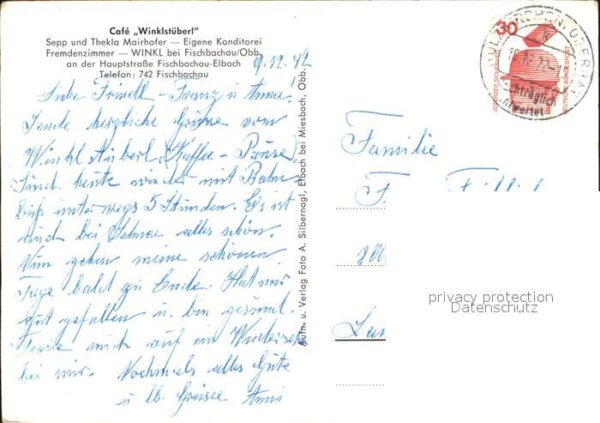 Café „Winklstüberl"
Sepp und Thekla Mairhofer — Eigene Konditorei
Fremdenzimmer — WINKL bei Fischbachau/Obb.
an der Hauptstraße Fischbachau-Elbach
Telefon: 742 Fischbachau
9.12.72
Liebe Friedl - Franz u. Anna!
Sende herzliche Grüsse vom
Winklstüberl Kaffee-Pause!
Sind heute wieder mit Bahn
5 Stunden. Es ist
auch bei Schnee alles schön.
Nun gehen meine schönen
Tage bald zu Ende. Hat mir
gut gefallen u. bin gesund.
Freue mich auf ein Wiederseh
bei mir. Nochmals alles Gute
u. lb. Grüsse Anni
Aufn. u. Verlag Foto A. Silbernagl, Elbach bei Miesbach, Obb.
30
nachträglich
entwertet
Familie
F
privacy protection
Datenschutz